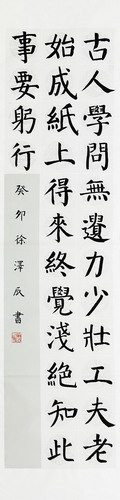 古人學問無遺力少壯工夫老
始成紙上得來終覺淺絕知此
事要躬行
癸卯徐澤辰書